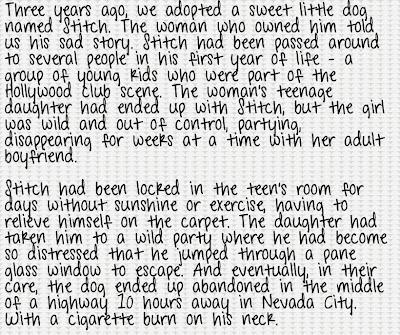 Three years ago, we adopted a sweet little dog
named Stitch. The woman who owned him told
us his sad story. Stitch had been passed around
to several people in his first year of life - a
group of young kids who were part of the
Hollywood club scene. The woman's teenage
daughter had ended up with Stitch, but the girl
was wild and out of control, partying,
disappearing for weeks at a time with her adult
boyfriend.
Stitch had been locked in the teen's room for
days without sunshine or exercise, having to
relieve himself on the carpet. The daughter had
taken him to a wild party where he had become
so distressed that he jumped through a pane
glass window to escape. And eventually, in their
care, the dog ended up abandoned in the middle
of a highway 10 hours away in Nevada City.
With a cigarette burn on his neck.